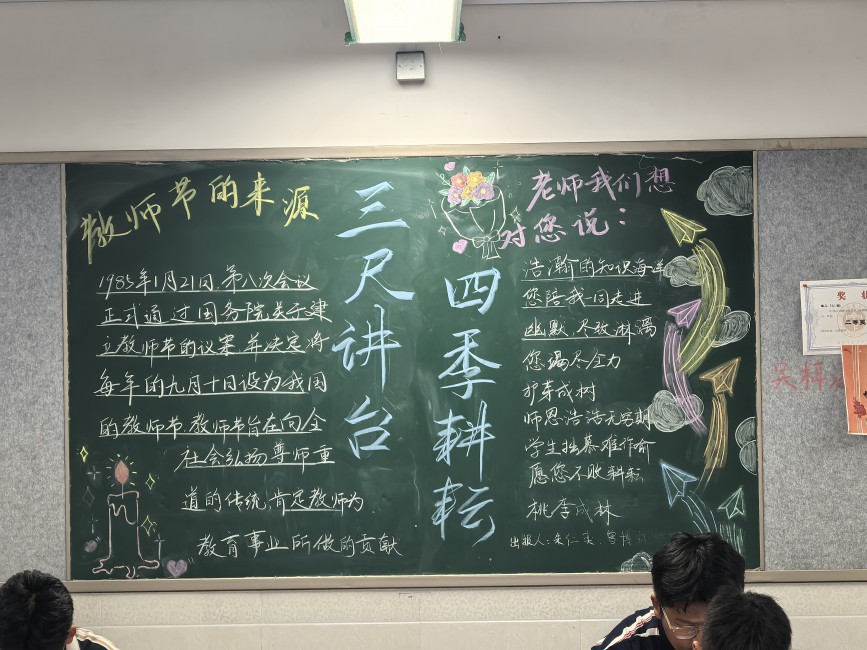 教师节的来源
1985年1月21日,第八次会议
正式通过国务院关于建
立教师节的议案,并决定将
每年的九月十日设为我国
的教师节,教师节旨在向全
社会弘扬尊师重
道的传统,肯定教师为
教育事业所做的贡献
三尺讲台
四季耕耘
老师我们想
对您说:
浩瀚的知识海洋
您陪我一同走进
幽默 尽致淋漓
您竭尽全力
护芽成树
师恩浩浩无穷期
学生 慕难作喻
愿您不收
桃李成林
出报人:
奖